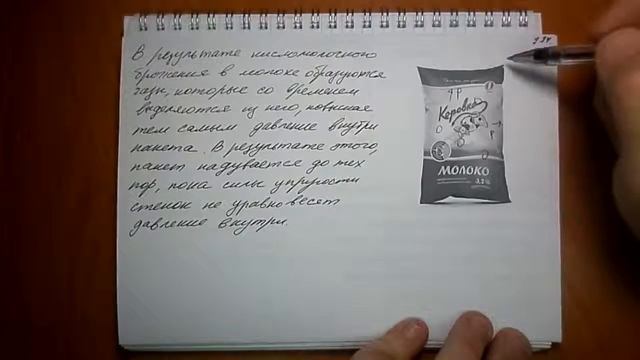 В результате кисломолочного
брожения в молоке образуются
газы, которые со временем
выделяются из него, повышая
тем самым давление внутри
пакета. В результате этого,
пакет надувается до тех
пор, пока силы упругости
стенок не уравновесят
давление внутри.
↑P
Коровка
→
P
МОЛОКО
3,2%